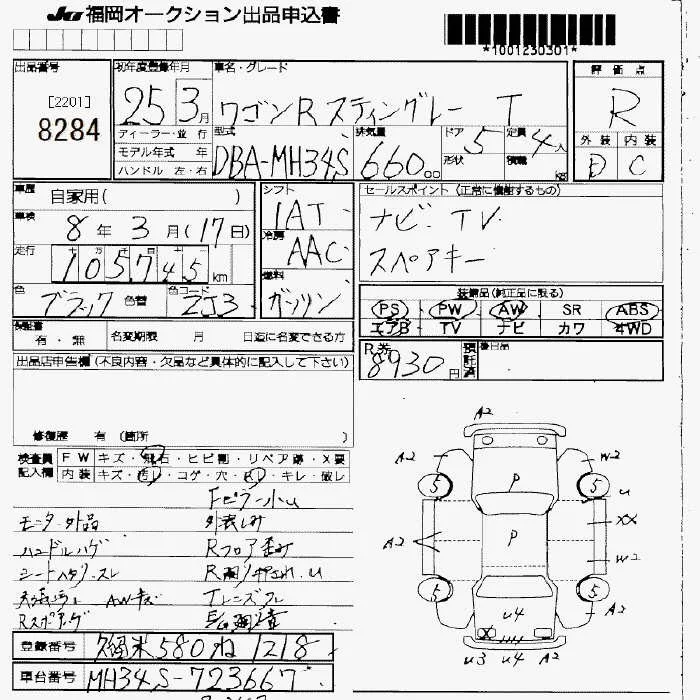 JU 福岡オークション出品申込書
*1001230301*
出品番号 初年度登録年月 車名・グレード 評価点
[2201]
8284
25 3月 ワゴンR スティングレー T R
ディーラー・並行 型式 排気量 ドア 5 定員 4人 外装 内装
モデル年式 年 DBA-MH34S 660 cc 形状 積載 kg D C
ハンドル 左・右
車歴 自家用( ) シフト セールスポイント (正常に機能するもの)
車検 8年 3月 (17日) IAT ナビ・TV
冷房 AAC スペアキー
走行 十 万 千 105745 km
燃料 ガソリン
色 ブラック 色替 色コード ZJ3
装備品(純正品に限る)
PS PW AW SR ABS
エアB TV ナビ カワ 4WD
保証書 有・無 名変期限 月 日迄に名変できる方
R券 8930円 預託済 後日品
出品店申告欄(不良内容・欠品など具体的に記入して下さい)
修復歴 有 (箇所 )
検査員記入欄 FW キズ・飛石・ヒビ割・リペア跡・X要
内装 キズ・汚レ・コゲ・穴・ビ・キレ・破レ
Fピラー小u
モニター外品
ハンドルハゲ Rフロア歪み
シートヘタリ・スレ
AWキズ Tレンズワレ
A2
A2 W2
5 P 5 u
XX
A2 P W2
5 5
u4 A2
X
u3 u4 A2
登録番号 久留米 580 ね 1218
車台番号 MH34S-723667